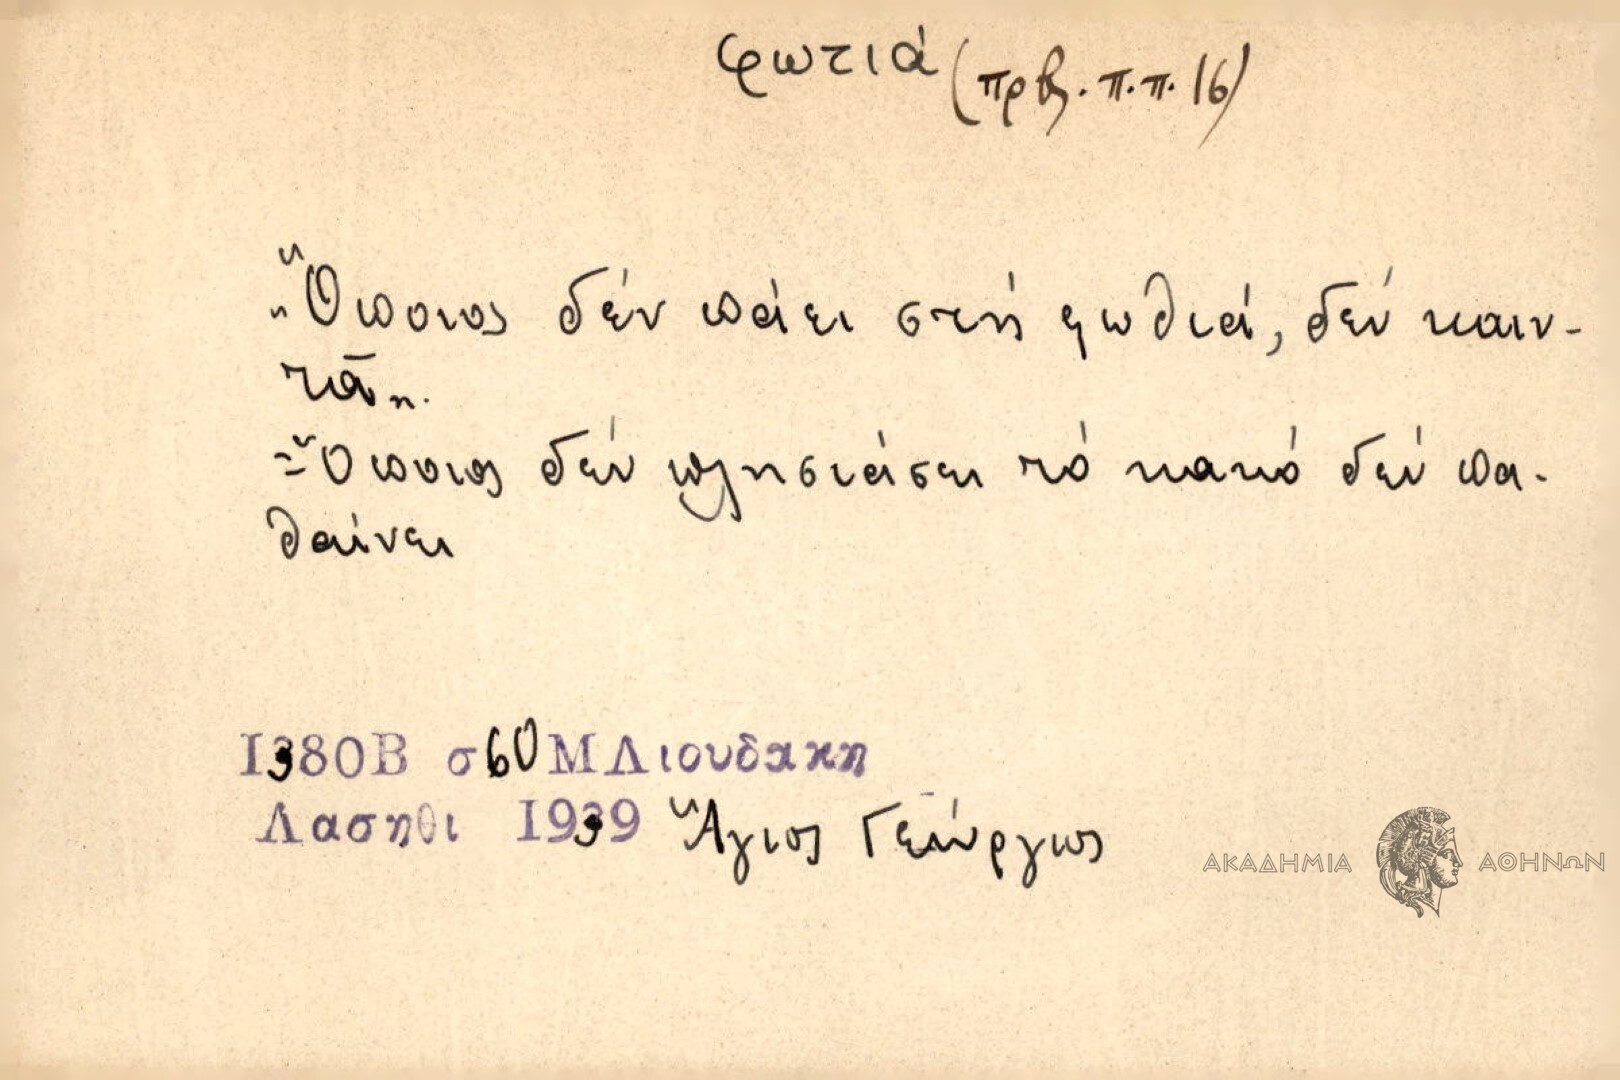 φωτιά (πρβ. π.π. 16)
"Ὅποιος δέν πάει στή φωθιά, δέν καιν-
τᾶ".
=Ὅποιος δέν πλησιάσει τό κακό δέν πα-
θαίνει
1380Β σ60 Μ Λιουδακη
Λασηθι 1939 Ἅγιος Γεώργιος
ΑΚΑΔΗΜΙΑ ΑΘΗΝΩΝ